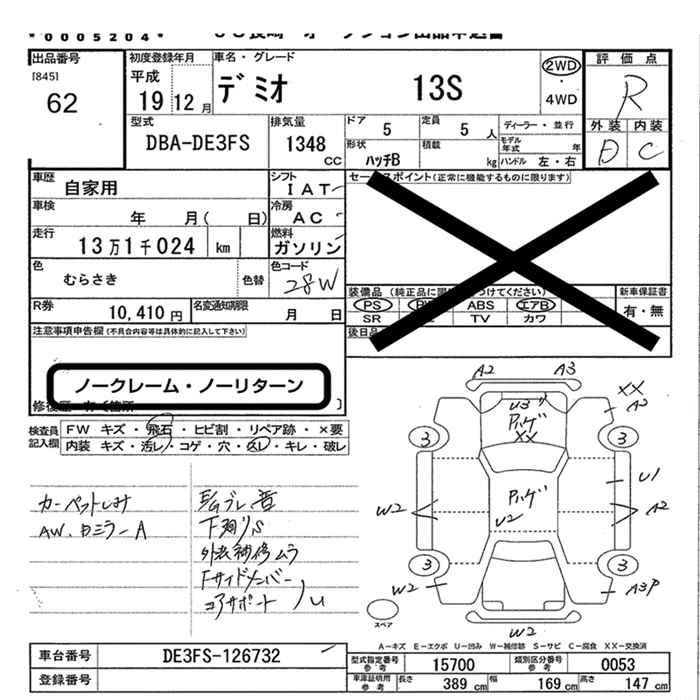 *0005204*
出品番号
[845]
62
初度登録年月
平成
19 12月
車名・グレード
デミオ 13S
2WD
・
4WD
評価点
R
外装 内装
D C
型式
DBA-DE3FS
排気量
1348
CC
ドア 5
定員 5人
形状 ハッチB
積載 kg
ディーラー・並行
モデル年式 年
ハンドル 左・右
車歴 自家用
シフト
IAT
セールスポイント(正常に機能するものに限ります)
車検 年 月( 日)
冷房
AC
走行
13万1千024 km
燃料
ガソリン
色
むらさき
色替
色コード
28W
装備品
PS ABS エアB
SR TV カワ
後日品
新車保証書
有・無
R券
10,410円
名変通知期限
月 日
注意事項申告欄(不具合内容等は具体的に記入して下さい)
ノークレーム・ノーリターン
検査員記入欄
FW キズ・飛石・ヒビ割・リペア跡・×要
内装 キズ・汚レ・コゲ・穴・凹レ・キレ・破レ
カーペットしみ
AW.
下廻りS
外装補修ムラ
Fサイドメンバー
コアサポート U
A2 A3
U3
パハゲ
XX
XX
A2
3 3
U1
W2 A2
パハゲ
U2
3 3
W2 A3P
W2
スペア
A−キズ E−エクボ U−凹み W−補修跡 S−サビ C−腐食 XX−交換済
車台番号 DE3FS-126732
登録番号
型式指定番号
参考
15700
類別区分番号
参考
0053
車庫証明用
参考
長さ 389cm
幅 169cm
高さ 147cm